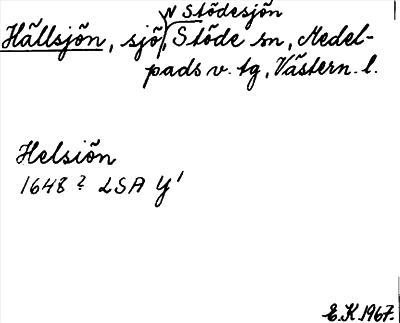 N Stödesjön
Hällsjön, sjö, Stöde sn, Medel-
pads v. tg, Västern. l.
Helsiön
1648? LSA Y'
E.K.1967.